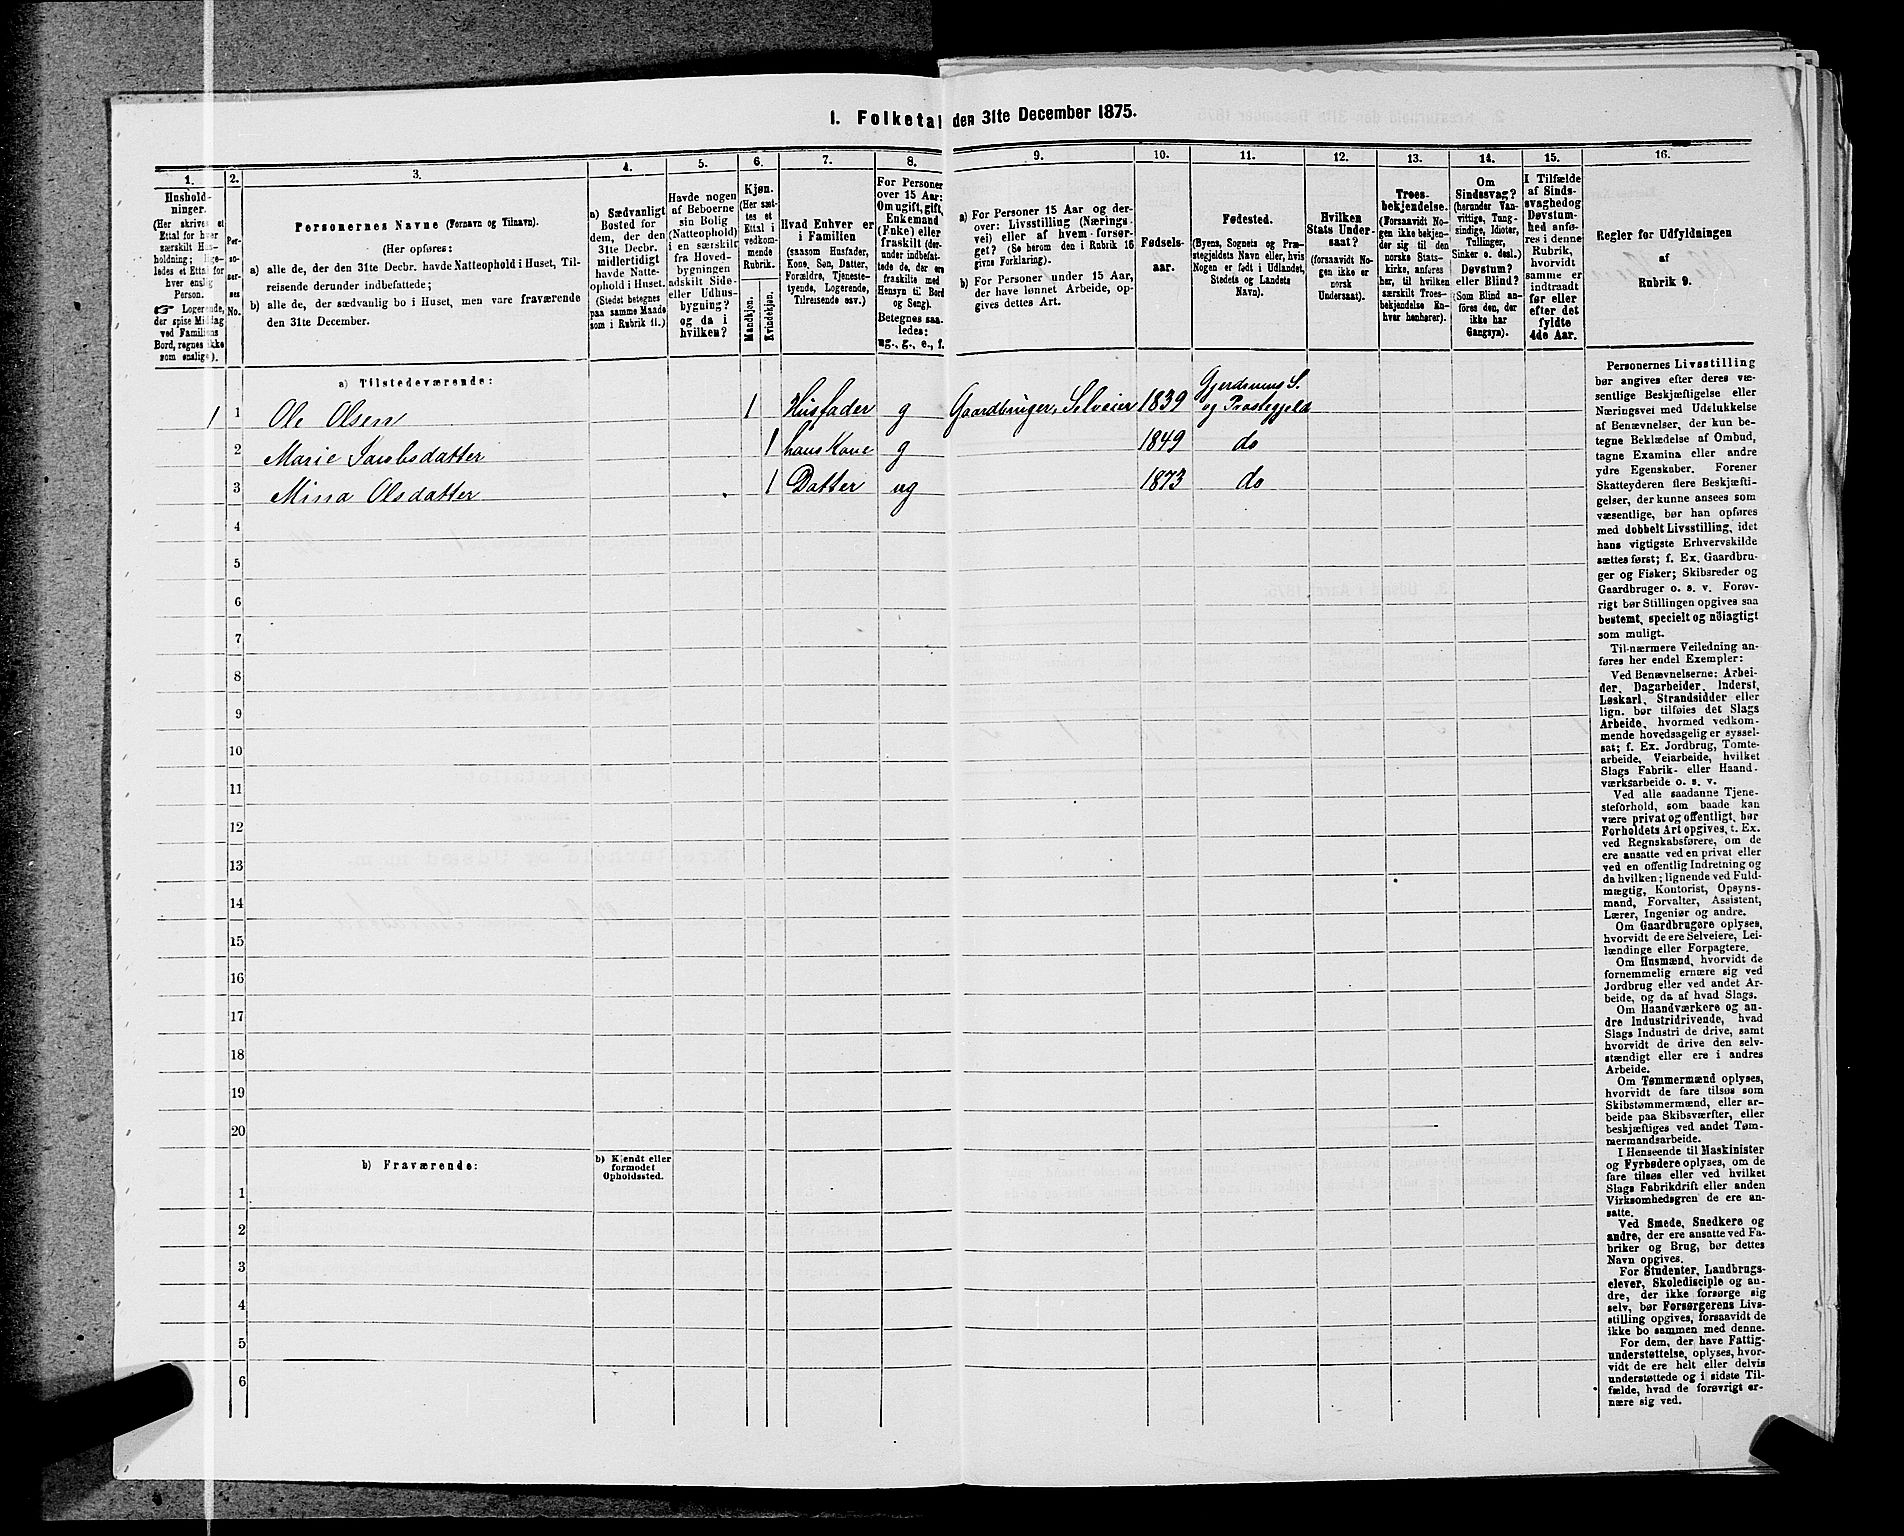 1. Folketal den 31te December 1875.
1.
2.
3.
4.
5.
6.
7.
8.
9.
10.
11.
12.
13.
14.
15.
16.
Hushold-
ninger.
(Her skrives et
Ettal for hver
særskilt Hus-
holdning; lige-
ledes et Ettal for
hver enslig
Person.
☞ Logerende,
der spise Middag
ved Familiens
Bord, regnes ikke
som enslige).
Per-
so-
ner-
nes
No.
Personernes Navne (Fornavn og Tilnavn).
(Her opføres:
a) alle de, der den 31te Decbr. havde Natteophold i Huset, Til-
reisende derunder indbefattede;
b) alle de, der sædvanlig bo i Huset, men vare fraværende
den 31te December.
a) Sædvanligt
Bosted for
dem, der den
31te Decbr.
midlertidigt
havde Natte-
ophold i Huset.
(Stedet betegnes
paa samme Maade
som i Rubrik 11.)
Havde nogen
af Beboerne
sin Bolig
(Natteophold)
i en særskilt
fra Hoved-
bygningen
adskilt Side-
eller Udhus-
bygning?
og da i
hvilken?
Kjøn.
(Her sæt-
tes et
Ettal i
vedkom-
mende
Rubrik.
Mandkjøn.
Kvindekjøn.
Hvad Enhver er
i Familien
(saasom Husfader,
Kone, Søn, Datter,
Forældre, Tjeneste-
tyende, Logerende,
Tilreisende osv.)
For Personer
over 15 Aar:
Om ugift, gift,
Enkemand
(Enke) eller
fraskilt (der-
under indbefat-
tede de, der ere
fraskilte med
Hensyn til Bord
og Seng).
Betegnes saa-
ledes:
ug., g., e., f.
a) For Personer 15 Aar og der-
over: Livsstilling (Nærings-
vei) eller af hvem forsør-
get? (Se herom den i Rubrik 16
givne Forklaring).
b) For Personer under 15 Aar,
der have lønnet Arbeide, op-
gives dettes Art.
Fødsels-
aar.
Fødested.
(Byens, Sognets og Præ-
stegjeldets Navn eller, hvis
Nogen er født i Udlandet,
Stedets og Landets
Navn).
Hvilken
Stats Under-
saat?
(forsaavidt No-
gen ikke er
norsk
Undersaat).
Troes-
bekjendelse.
(Forsaavidt No-
gen ikke bekjen-
der sig til den
norske Stats-
kirke, anføres
her, til hvilken
særskilt Troes-
bekjendelse En-
hver henhører).
Om
Sindssvag?
(herunder Van-
vittige, Tung-
sindige, Idioter,
Tullinger,
Sinker o. desl.)
Døvstum?
eller Blind?
(Som Blind an-
føres den, der
ikke har
Gangsyn).
I Tilfælde
af Sinds-
svaghed og
Døvstum-
hed anfø-
res i denne
Rubrik,
hvorvidt
samme er
indtraadt
før eller
efter det
fyldte
4de Aar.
Regler for Udfyldningen
af
Rubrik 9.
a) Tilstedeværende:
1 1 Ole Olsen 1 Husfader g Gaardbruger, Selveier 1839 Gjerdrums S.
og Præstegjeld
2 Marie Jacobsdatter 1 hans Kone g 1849 do
3 Mina Olsdatter 1 Datter ug 1873 do
4
5
6
7
8
9
10
11
12
13
14
15
16
17
18
19
20
b) Fraværende:
b) Kjendt eller
formodet
Opholdssted.
1
2
3
4
5
6
Personernes Livsstilling
bør angives efter deres væ-
sentlige Beskjæftigelse eller
Næringsvei med Udelukkelse
af Benævnelser, der kun be-
tegne Beklædelse af Ombud,
tagne Examina eller andre
ydre Egenskaber. Forener
Skatteyderen flere Beskjæfti-
gelser, der kunne ansees som
væsentlige, bør han opføres
med dobbelt Livsstilling, idet
hans vigtigste Erhvervskilde
sættes først; f. Ex. Gaardbru-
ger og Fisker; Skibsreder og
Gaardbruger o. s. v. Forøv-
rigt bør Stillingen opgives saa
bestemt, specielt og nöiagtigt
som muligt.
Til nærmere Veiledning an-
føres her endel Exempler:
Ved Benævnelserne: Arbei-
der, Dagarbeider, Inderst,
Løskarl, Strandsidder eller
lign. bør tilføies det Slags
Arbeide, hvormed vedkom-
mende hovedsagelig er syssel-
sat; f. Ex. Jordbrug, Tomte-
arbeide, Veiarbeide, hvilket
Slags Fabrik- eller Haand-
værksarbeide o. s. v.
Ved alle saadanne Tjene-
steforhold, som baade kan
være privat og offentligt, bør
Forholdets Art opgives, t. Ex.
ved Regnskabsførere, om de
ere ansatte ved en privat eller
ved en offentlig Indretning og
da hvilken; lignende ved Fuld-
mægtig, Kontorist, Opsyns-
mand, Forvalter, Assistent,
Lærer, Ingeniør og andre.
Om Gaardbrugere oplyses,
hvorvidt de ere Selveiere, Lei-
lændinge eller Forpagtere.
Om Husmænd, hvorvidt de
fornemmelig ernære sig ved
Jordbrug eller ved andet Ar-
beide, og da af hvad Slags.
Om Haandværkere og an-
dre Industridrivende, hvad
Slags Industri de drive, samt
hvorvidt de drive den selv-
stændigt eller ere i andres
Arbeide.
Om Tømmermænd oplyses,
hvorvidt de fare tilsøs som
Skibstømmermænd, eller ar-
beide paa Skibsværfter, eller
beskjæftiges ved andet Tøm-
mermandsarbeide.
I Henseende til Maskinister
og Fyrbødere oplyses, om de
fare tilsøs eller ved hvilket
Slags Fabrikdrift eller anden
Virksomhedsgren de ere an-
satte.
Ved Smede, Snedkere og
andre, der ere ansatte ved Fa-
briker og Brug, bør dettes
Navn opgives.
For Studenter, Landbrugs-
elever, Skoledisciple og an-
dre, der ikke forsørge sig
selv, bør Forsørgerens Livs-
stilling opgives, forsaavidt de
ikke bo sammen med denne.
For dem, der have Fattig-
understøttelse, oplyses, hvor-
vidt de ere helt eller delvis
understøttede og i sidste Til-
fælde, hvad de forøvrigt er-
nære sig ved.